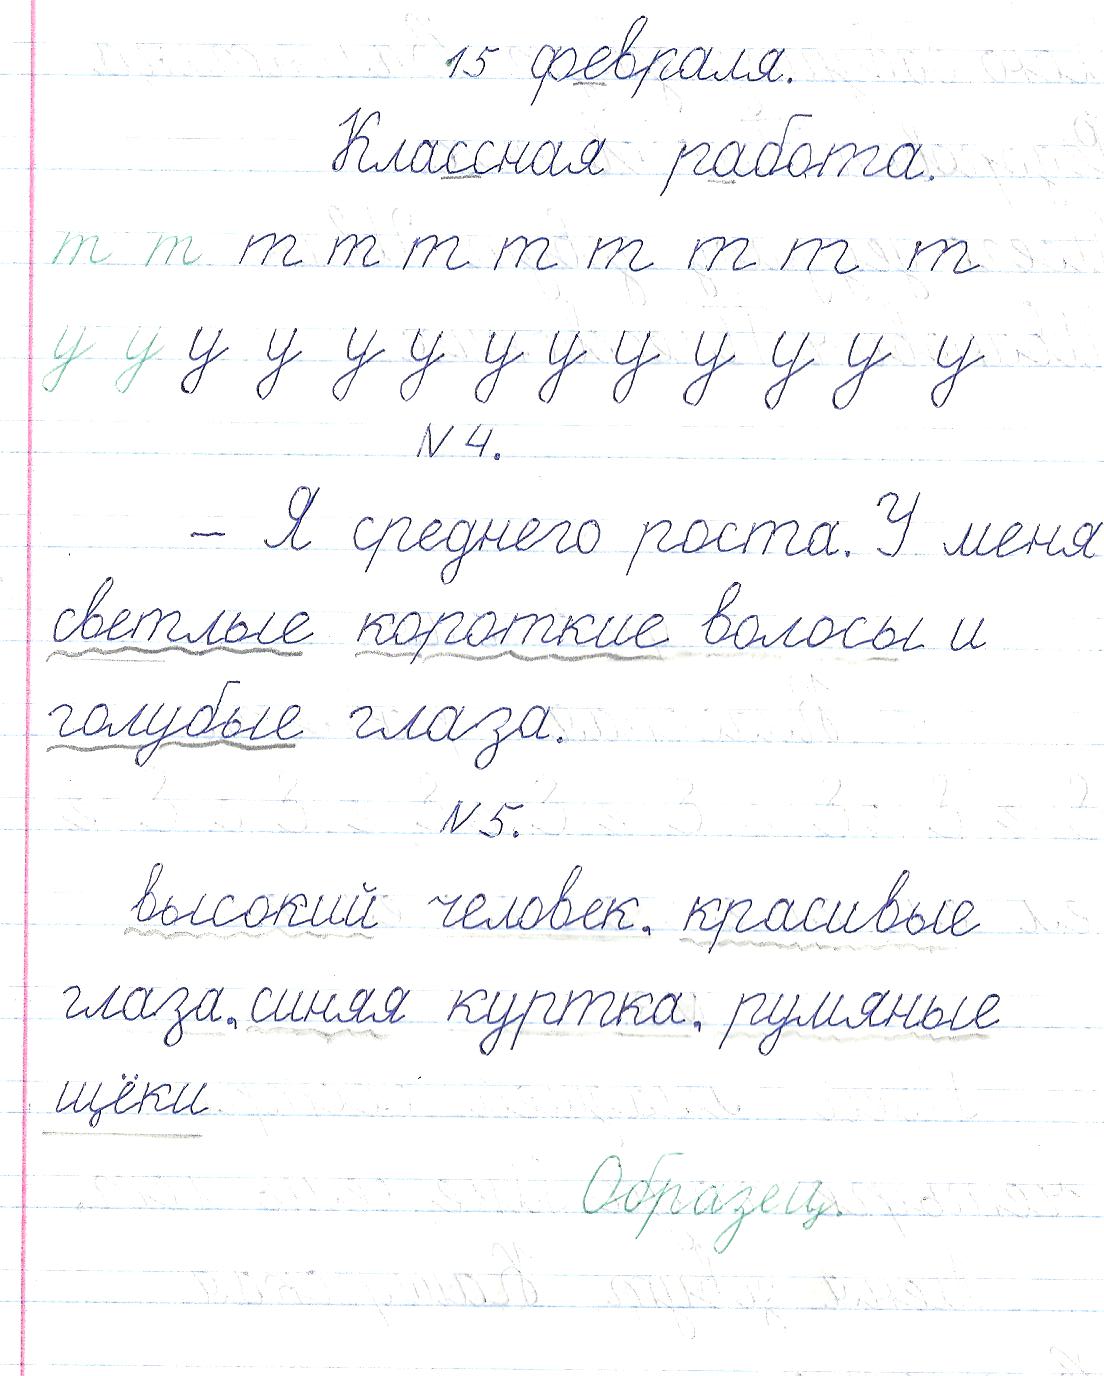 15 февраля.
Классная работа.
т т т т т т т т т т
у у у у у у у у у у у у у
N 4.
– Я среднего роста. У меня
светлые короткие волосы и
голубые глаза.
N 5.
высокий человек. красивые
глаза. синяя куртка. румяные
щёки
Образец.